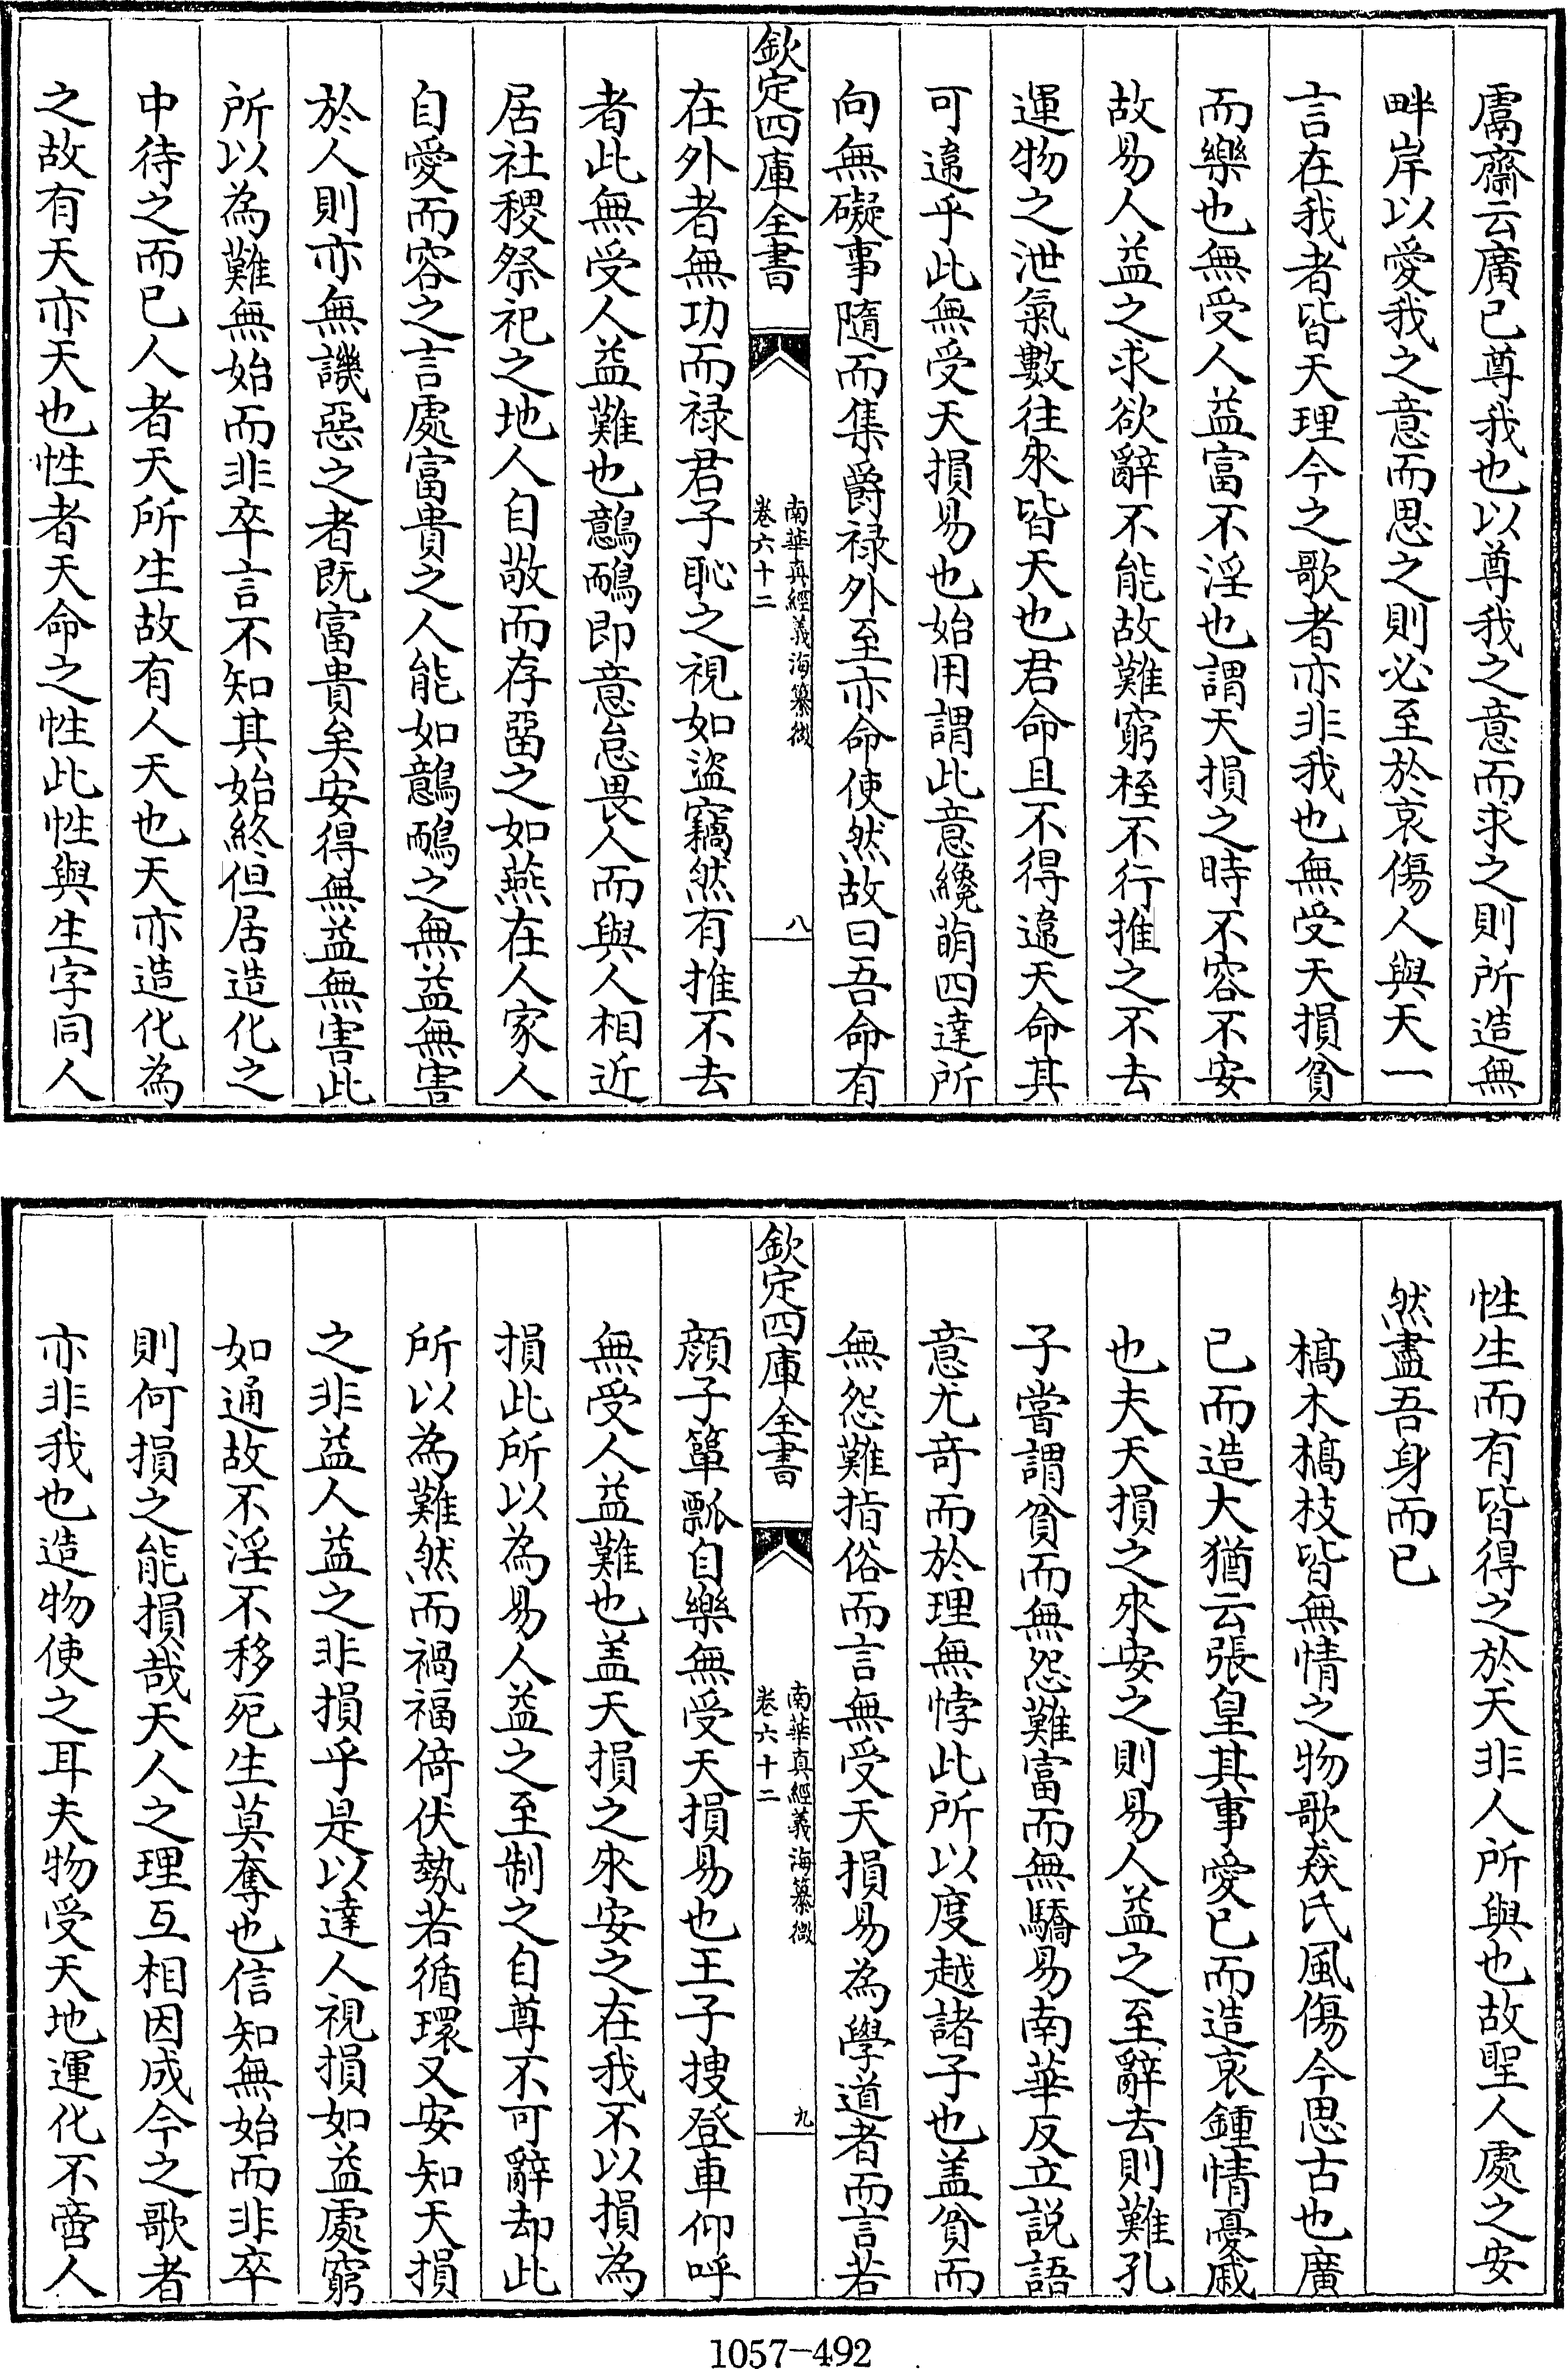 鬳齋云廣已尊我也以尊我之意而求之則所造無
畔岸以愛我之意而思之則必至於哀傷人與天一
言在我者皆天理今之歌者亦非我也無受天損貧
而樂也無受人益富不淫也謂天損之時不容不安
故易人益之求欲辭不能故難窮桎不行推之不去
運物之泄氣數往來皆天也君命且不得違天命其
可違乎此無受天損易也始用謂此意纔萌四達所
向無礙事隨而集爵禄外至亦命使然故曰吾命有
欽定四庫全書
南華真經義海纂微
卷六十二
八
在外者無功而禄君子恥之視如盜竊然有推不去
者此無受人益難也鷾鴯即意怠畏人而與人相近
居社稷祭祀之地人自敬而存畱之如燕在人家人
自愛而容之言處富貴之人能如鷾鴯之無益無害
於人則亦無譏惡之者既富貴矣安得無益無害此
所以為難無始而非卒言不知其始終但居造化之
中待之而已人者天所生故有人天也天亦造化為
之故有天亦天也性者天命之性此性與生字同人
性生而有皆得之於天非人所與也故聖人處之安
然盡吾身而已
槁木槁枝皆無情之物歌焱氏風傷今思古也廣
已而造大猶云張皇其事愛已而造哀鍾情憂戚
也夫天損之來安之則易人益之至辭去則難孔
子嘗謂貧而無怨難富而無驕易南華反立説語
意尤竒而於理無悖此所以度越諸子也盖貧而
無怨難指俗而言無受天損易為學道者而言若
欽定四庫全書
南華真經義海纂微
卷六十二
九
顔子簞瓢自樂無受天損易也王子搜登車仰呼
無受人益難也盖天損之來安之在我不以損為
損此所以為易人益之至制之自尊不可辭却此
所以為難然而禍福倚伏埶若循環又安知天損
之非益人益之非損乎是以達人視損如益處窮
如通故不淫不移死生莫奪也信知無始而非卒
則何損之能損哉天人之理互相因成今之歌者
亦非我也造物使之耳夫物受天地運化不啻人
1057-492